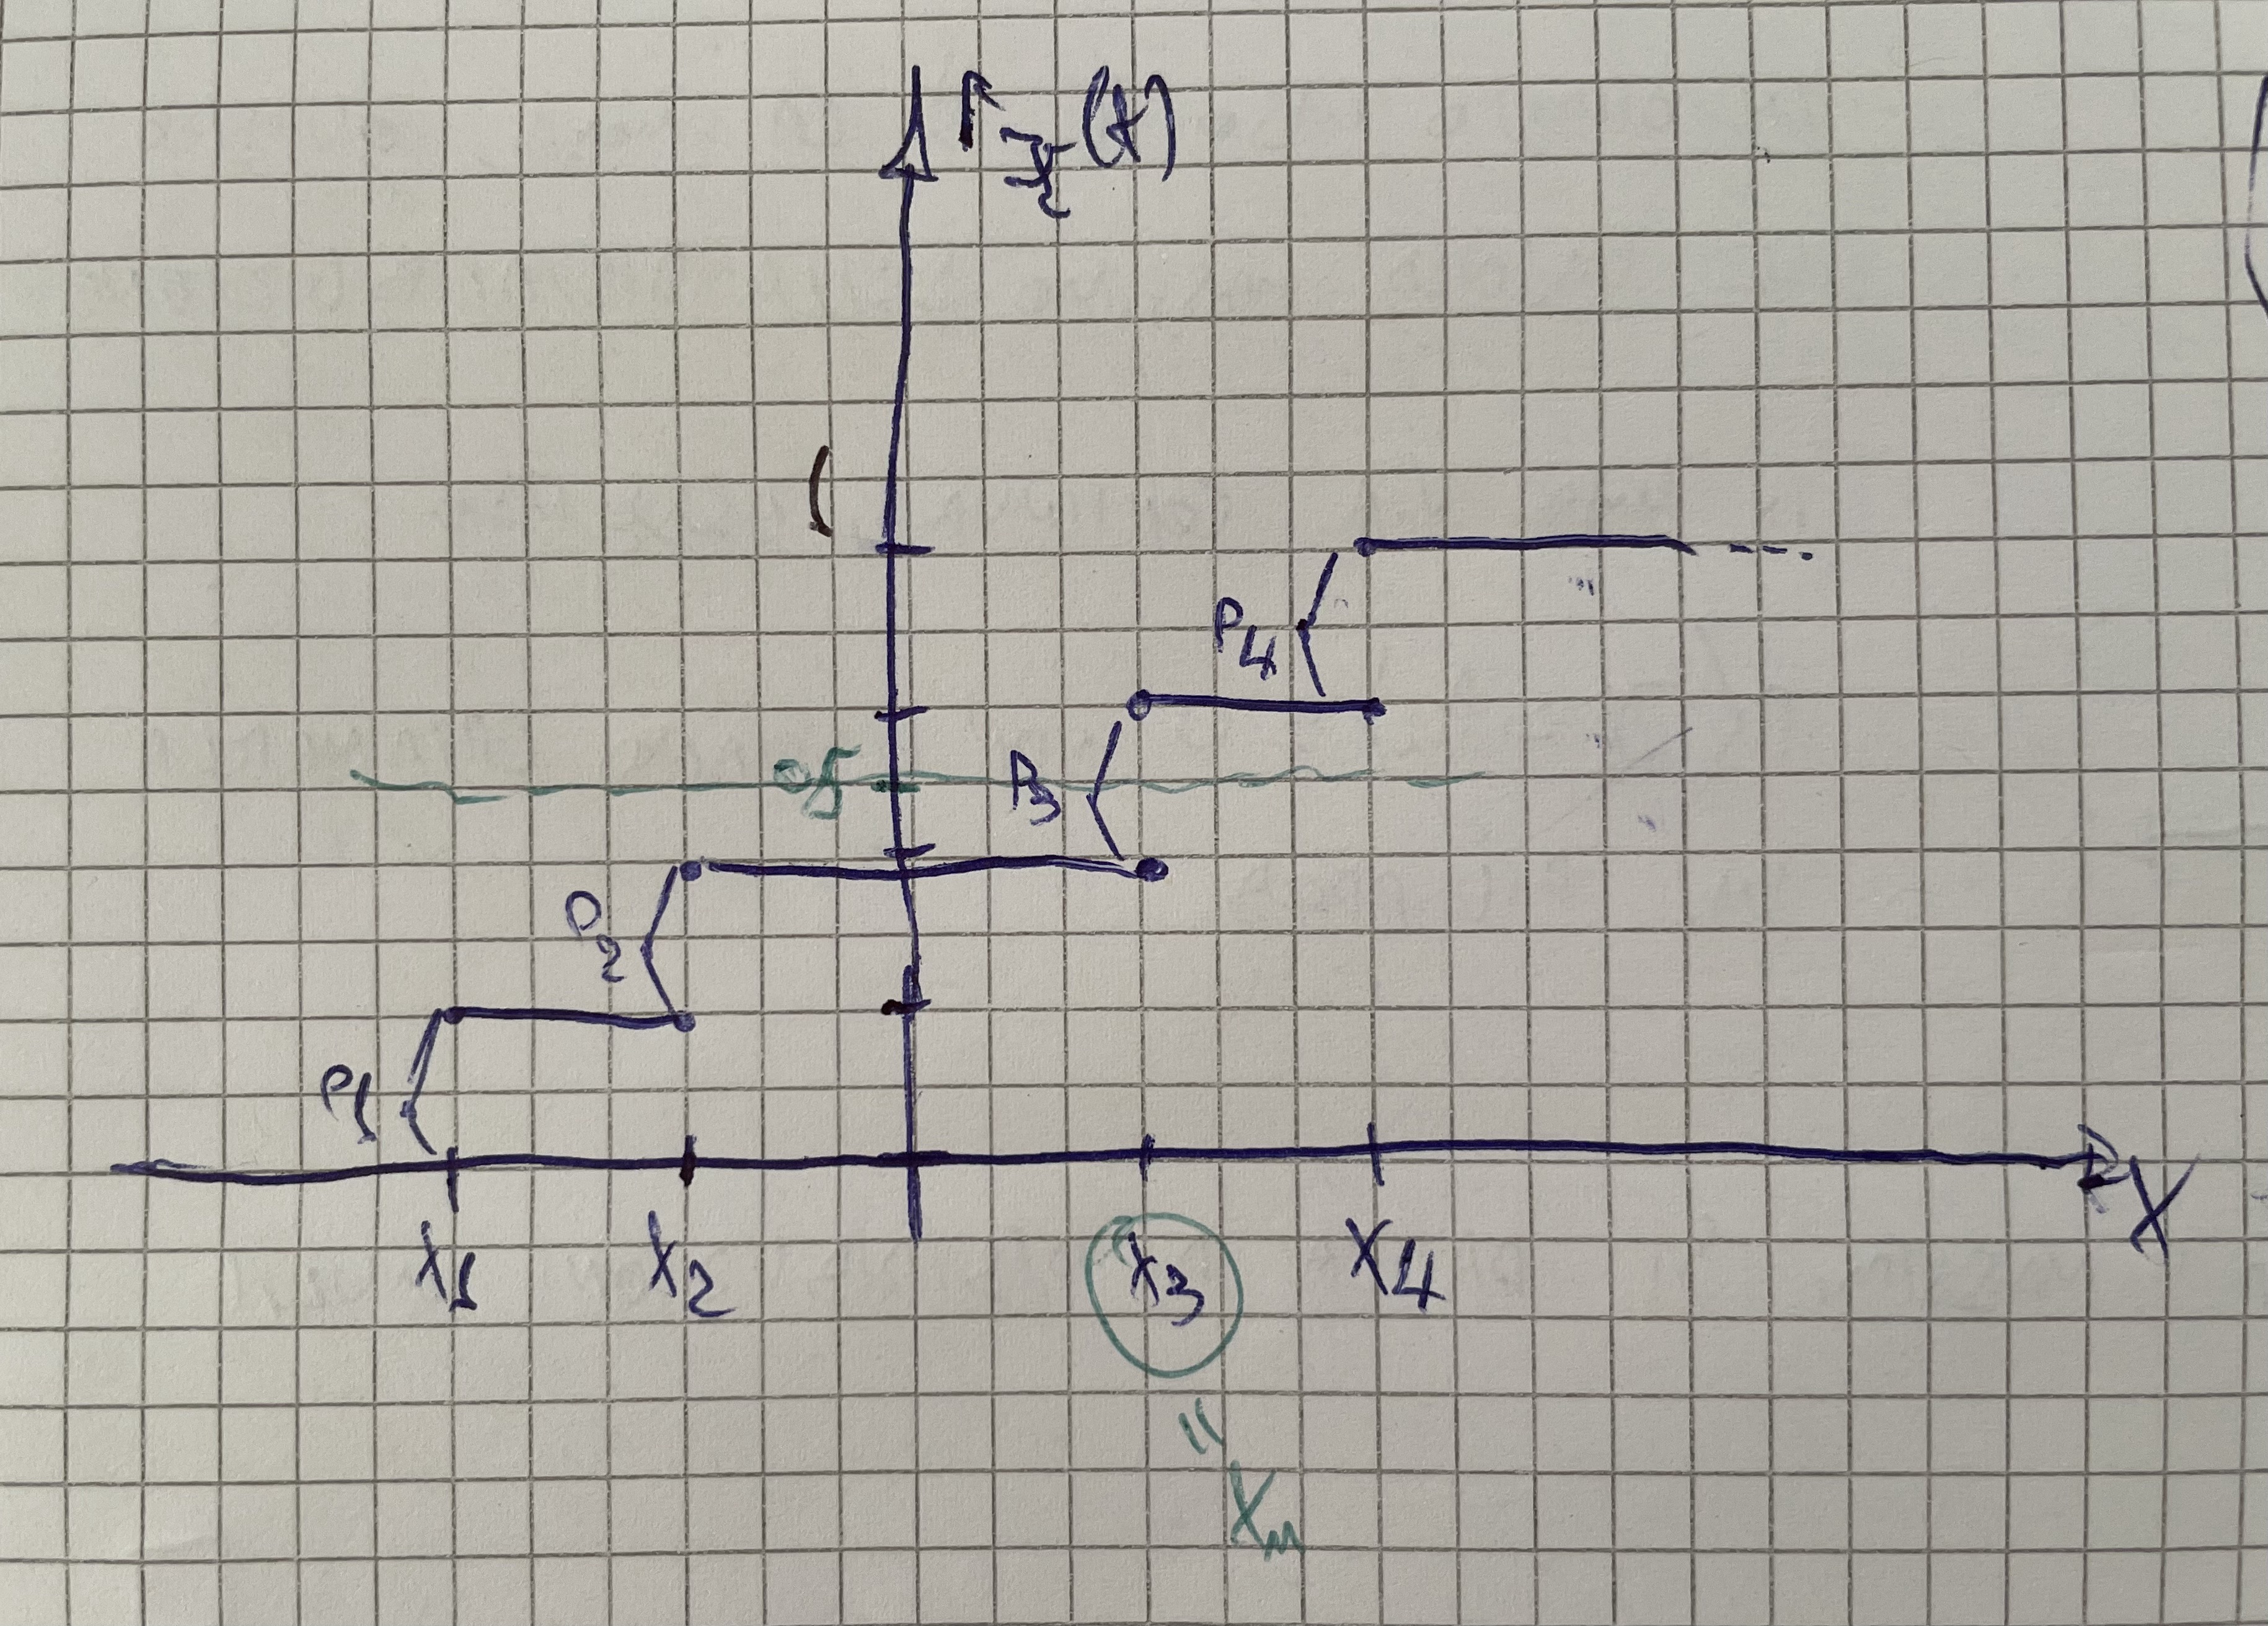 F_ξ(x)
1
P4
0,5
P3
P2
P1
x1 x2 x3 x4 X
=
xm